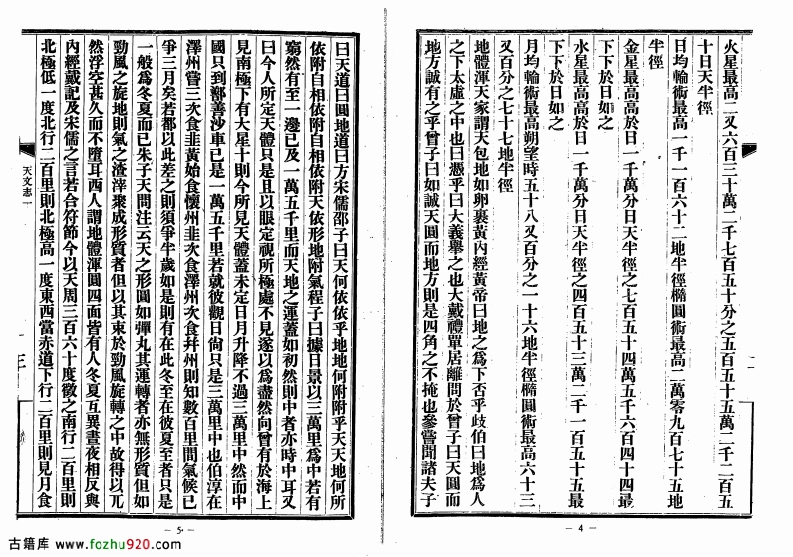 火星最高二又六百三十萬二千七百五十分之五百五十五萬二千二百五
十日天半徑
日均輪術最高一千一百六十二地半徑橢圓術最高二萬零九百七十五地
半徑
金星最高高於日一千萬分日天半徑之七百五十四萬五千六百四十四最
下下於日如之
水星最高高於日一千萬分日天半徑之四百五十三萬二千一百五十五最
下下於日如之
月均輪術最高朔望時五十八又百分之一十六地半徑橢圓術最高六十三
又百分之七十七地半徑
地體渾天家謂天包地如卵裹黃內經黃帝曰地之爲下否乎歧伯曰地爲人
之下太虛之中也曰憑乎曰大義舉之也大戴禮單居離問於曾子曰天圓而
地方誠有之乎曾子曰如誠天圓而地方則是四角之不掩也參嘗聞諸夫子
— 4 —
曰天道曰圓地道曰方宋儒邵子曰天何依依乎地地何附附乎天天地何所
依附自相依附自相依附天依形地附氣程子曰據日景以三萬里爲中若有
窮然有至一邊已及一萬五千里而天地之運蓋如初然則中者亦時中耳又
曰今人所定天體只是且以眼定視所極處不見遂以爲盡然向曾有於海上
見南極下有大星十則今所見天體蓋未定日月升降不過三萬里中然而中
國只到鄯善沙車已是一萬五千里若就彼觀日尙只是三萬里中也伯淳在
澤州嘗三次食韭黃始食懷州韭次食澤州次食幷州則知數百里間氣候已
爭三月矣若都以此差之則須爭半歲如是則有在此冬至在彼夏至者只是
一般爲冬夏而已朱子天問注云天之形圓如彈丸其運轉者亦無形質但如
勁風之旋地則氣之渣滓聚成形質者但以其束於勁風旋轉之中故得以兀
然浮空甚久而不墮耳西人謂地體渾圓四面皆有人冬夏互異晝夜相反與
內經戴記及宋儒之言若合符節今以天周三百六十度徵之南行二百里則
北極低一度北行二百里則北極高一度東西當赤道下行二百里則見月食
天文志一
— 5 —
古籍库 www.fozhu920.com